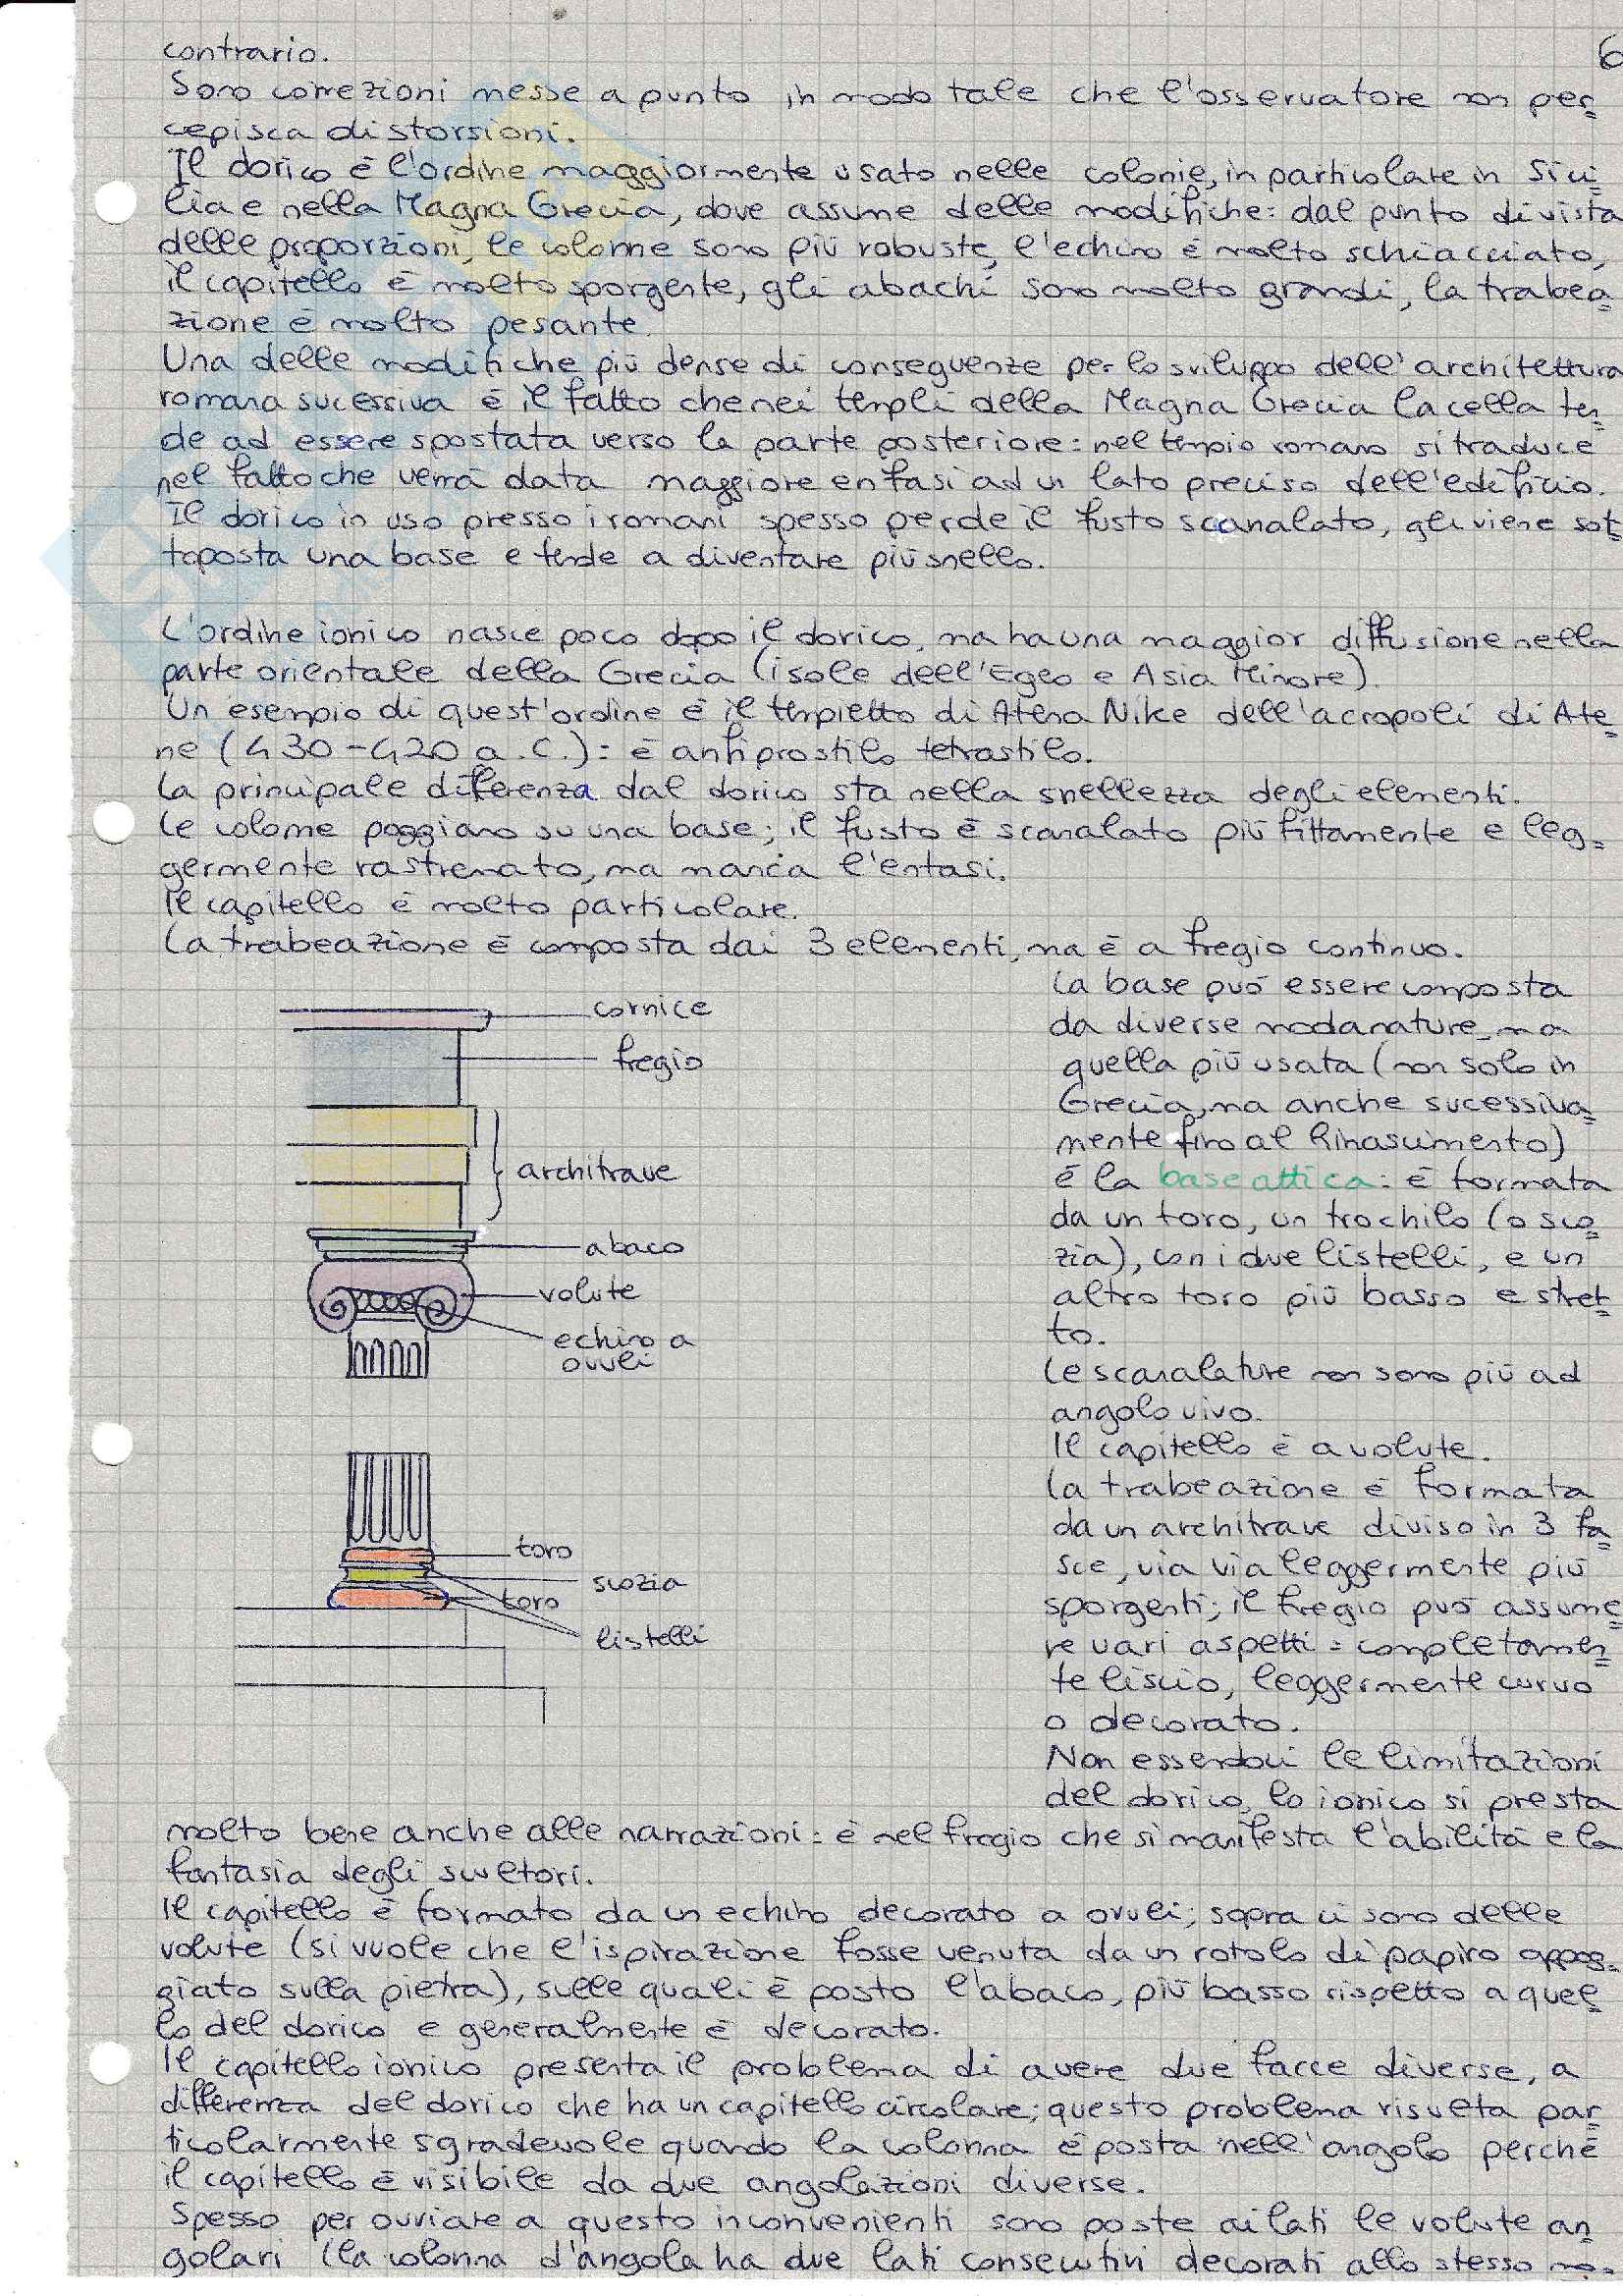 contrario.
6
Sono correzioni messe a punto in modo tale che l'osservatore non per=
cepisca distorsioni.
Il dorico è l'ordine maggiormente usato nelle colonie, in particolare in Sici=
lia e nella Magna Grecia, dove assume delle modifiche: dal punto di vista
delle proporzioni, le colonne sono più robuste, l'echino è molto schiacciato,
il capitello è molto sporgente, gli abachi sono molto grandi, la trabea=
zione è molto pesante.
Una delle modifiche più dense di conseguenze per lo sviluppo dell'architettura
romana sucessiva è il fatto che nei templi della Magna Grecia la cella ten=
de ad essere spostata verso la parte posteriore: nel tempio romano si traduce
nel fatto che verrà data maggiore enfasi ad un lato preciso dell'edificio.
Il dorico in uso presso i romani spesso perde il fusto scanalato, gli viene sot=
toposta una base e tende a diventare più snello.
L'ordine ionico nasce poco dopo il dorico, ma ha una maggior diffusione nella
parte orientale della Grecia (isole dell'Egeo e Asia Minore).
Un esempio di quest'ordine è il tempietto di Atena Nike dell'acropoli di Ate=
ne (430-420 a.C.): è anfiprostilo tetrastilo.
La principale differenza dal dorico sta nella snellezza degli elementi.
Le colonne poggiano su una base; il fusto è scanalato più fittamente e leg=
germente rastremato, ma manca l'entasi.
Il capitello è molto particolare.
La trabeazione è composta dai 3 elementi, ma è a fregio continuo.
cornice
fregio
architrave
abaco
volute
echino a
ovuli
toro
scozia
toro
listelli
La base può essere composta
da diverse modanature, ma
quella più usata (non solo in
Grecia, ma anche sucessiva=
mente fino al Rinascimento)
è la base attica: è formata
da un toro, un trochilo (o sco=
zia), con i due listelli, e un
altro toro più basso e stret=
to.
Le scanalature non sono più ad
angolo vivo.
Il capitello è a volute.
La trabeazione è formata
da un architrave diviso in 3 fa=
sce, via via leggermente più
sporgenti; il fregio può assume=
re vari aspetti: completamen=
te liscio, leggermente curvo
o decorato.
Non essendoci le limitazioni
del dorico, lo ionico si presta
molto bene anche alle narrazioni: è nel fregio che si manifesta l'abilità e la
fantasia degli scultori.
Il capitello è formato da un echino decorato a ovuli; sopra ci sono delle
volute (si vuole che l'ispirazione fosse venuta da un rotolo di papiro appog=
giato sulla pietra), sulle quali è posto l'abaco, più basso rispetto a quel=
lo del dorico e generalmente è decorato.
Il capitello ionico presenta il problema di avere due facce diverse, a
differenza del dorico che ha un capitello circolare; questo problema risulta par=
ticolarmente sgradevole quando la colonna è posta nell'angolo perché
il capitello è visibile da due angolazioni diverse.
Spesso per ovviare a questo inconvenienti sono poste ai lati le volute an=
golari (la colonna d'angola ha due lati consecutivi decorati allo stesso mo=